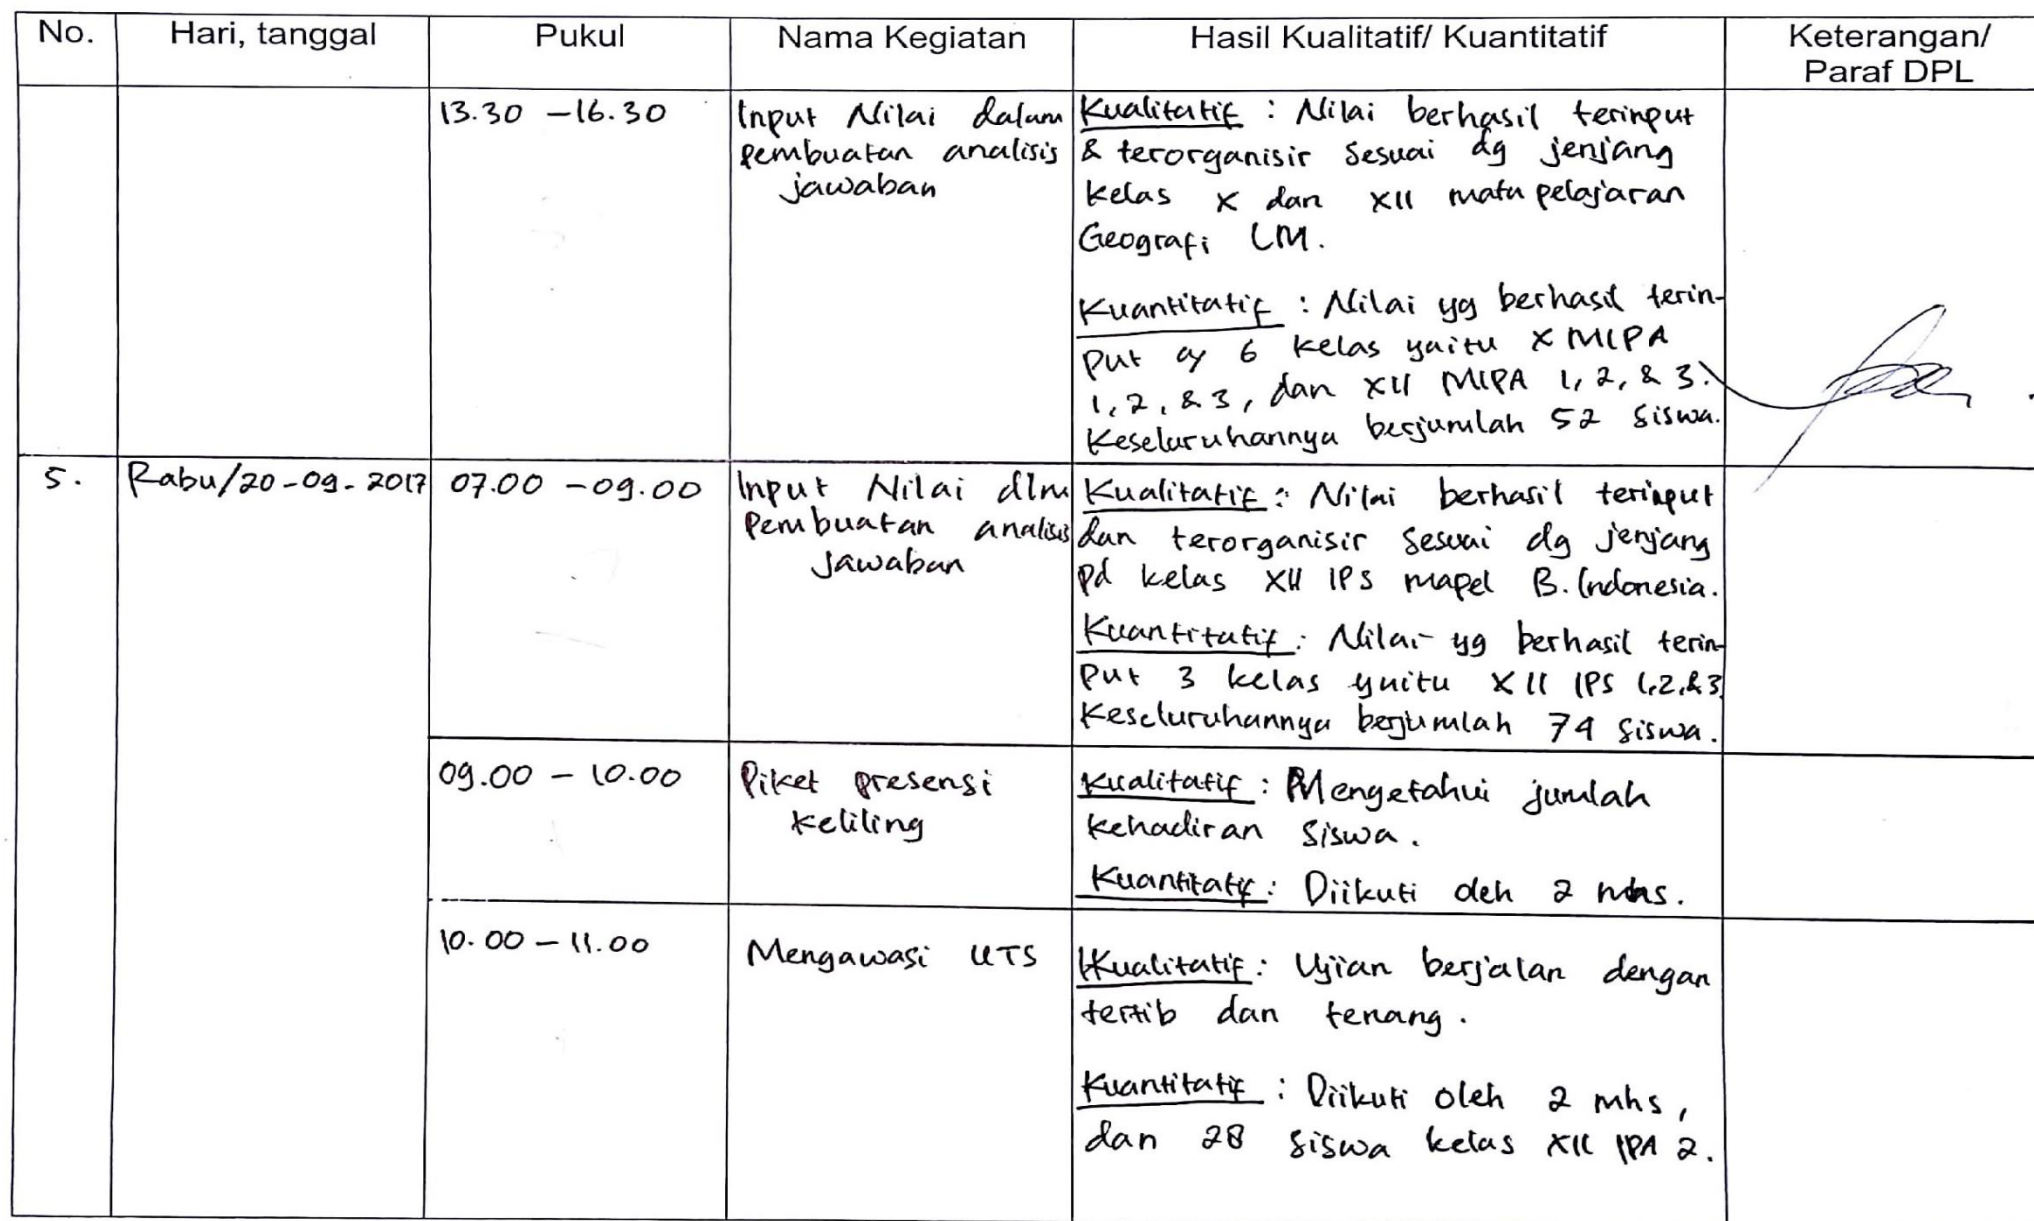 No.
Hari, tanggal
Pukul
Nama Kegiatan
Hasil Kualitatif/ Kuantitatif
Keterangan/
Paraf DPL
13.30 - 16.30
Input Nilai dalam
pembuatan analisis
jawaban
Kualitatif : Nilai berhasil terinput
& terorganisir sesuai dg jenjang
kelas X dan XII mata pelajaran
Geografi LM.
Kuantitatif : Nilai yg berhasil terin-
put 6 kelas yaitu X MIPA
1, 2, & 3, dan XII MIPA 1, 2, & 3.
Keseluruhannya berjumlah 52 siswa.
5.
Rabu/20-09-2017
07.00 - 09.00
Input Nilai dlm
Pembuatan analisis
Jawaban
Kualitatif : Nilai berhasil terinput
dan terorganisir sesuai dg jenjang
pd kelas XII IPS mapel B. Indonesia.
Kuantitatif : Nilai yg berhasil terin-
put 3 kelas yaitu XII IPS 1,2,&3
Keseluruhannya berjumlah 74 siswa.
09.00 - 10.00
Piket presensi
keliling
Kualitatif : Mengetahui jumlah
kehadiran siswa.
Kuantitatif : Diikuti oleh 2 mhs.
10.00 - 11.00
Mengawasi UTS
Kualitatif : Ujian berjalan dengan
tertib dan tenang.
Kuantitatif : Diikuti oleh 2 mhs,
dan 28 siswa kelas XII IPA 2.